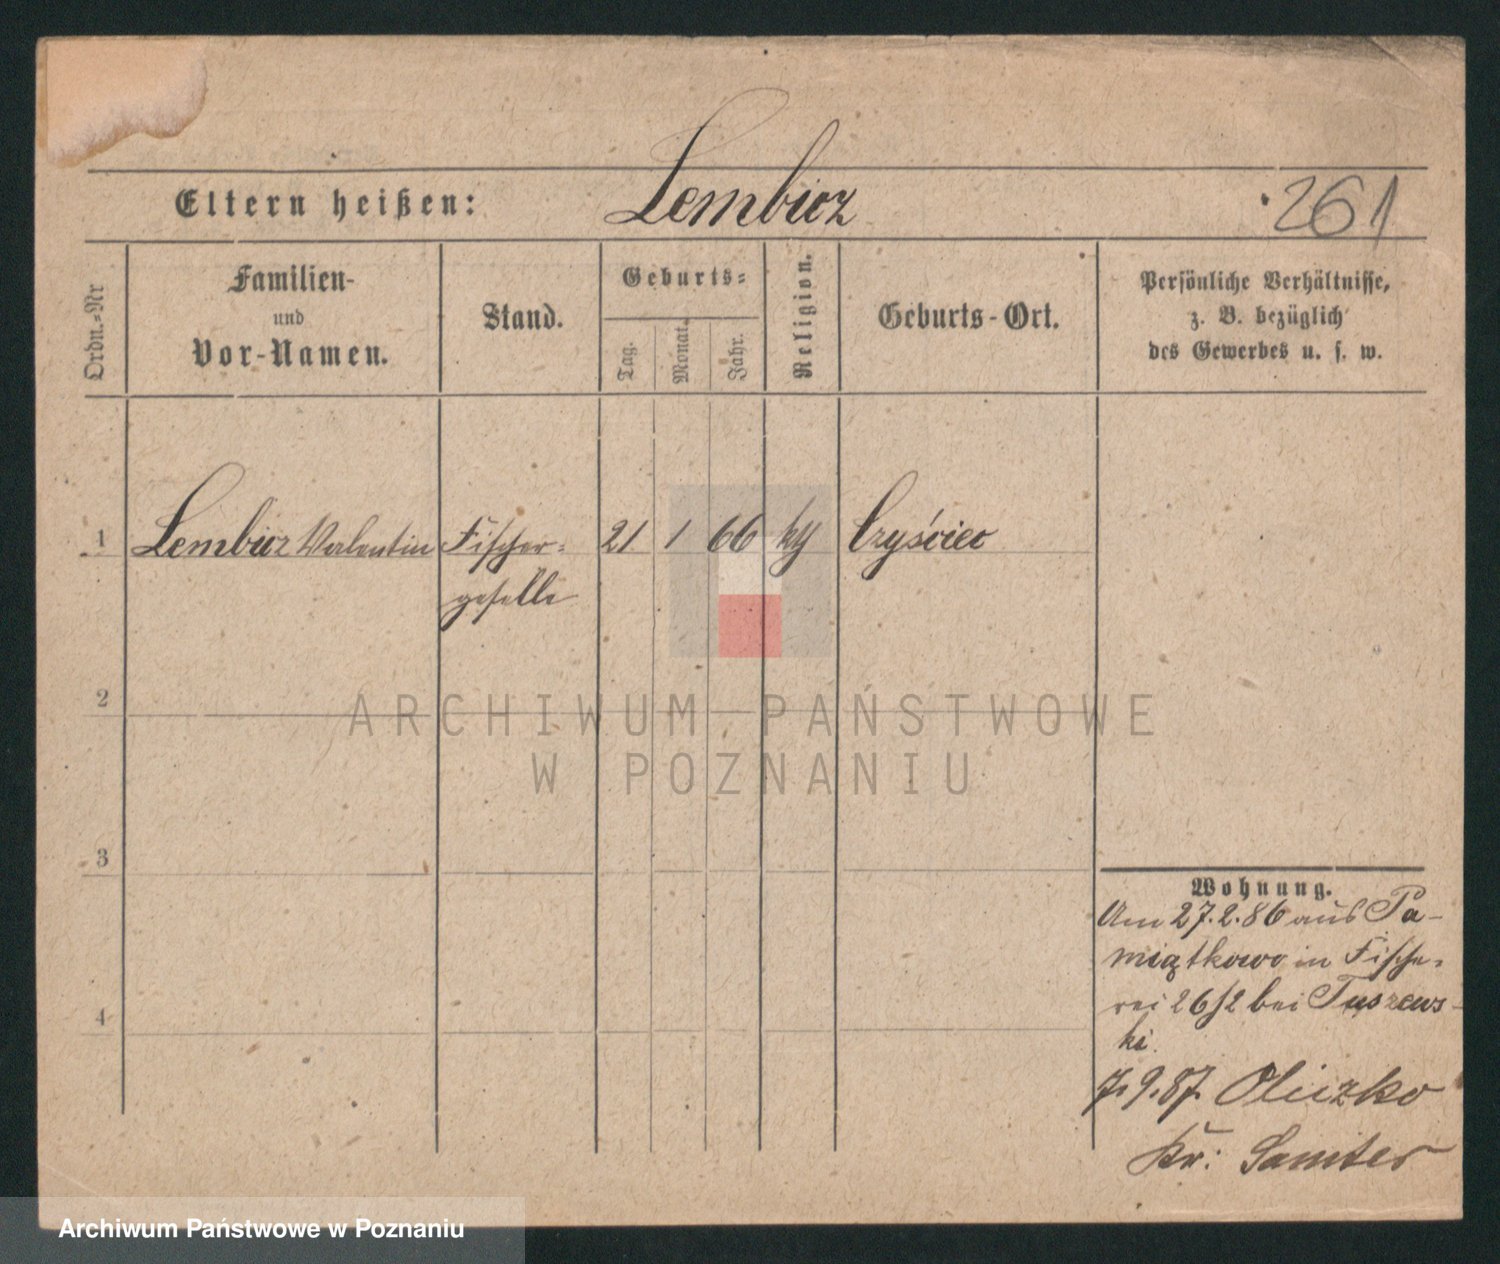 Eltern heißen: Lembicz 261
Ordn.-Nr
Familien-
und
Vor-Namen.
Stand.
Geburts-
Tag.
Monat.
Jahr.
Religion.
Geburts-Ort.
Persönliche Verhältnisse,
z. B. bezüglich
des Gewerbes u. s. w.
1 Lembicz Valentin Fischer- 21 1 66 ktl Czyściec
geselle
2
ARCHIWUM PAŃSTWOWE
W POZNANIU
3
Wohnung.
Am 27.2.86 aus Pa-
miątkowo in Fische-
rei 26/2 bei Tuszews-
ki.
4
7.9.87. Oliczko
Kr: Samter
Archiwum Państwowe w Poznaniu